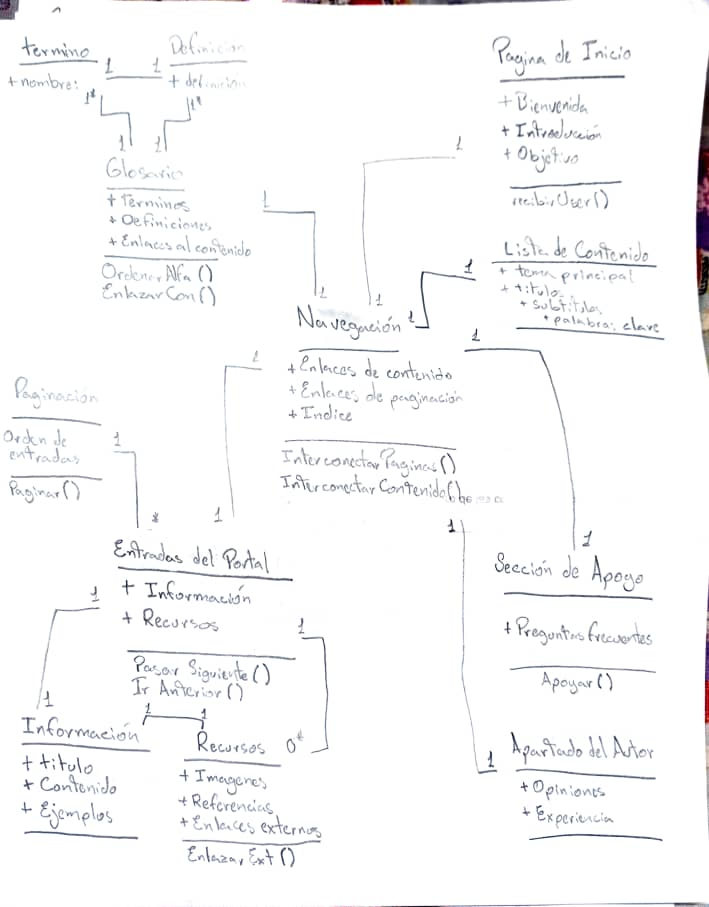 termino
+ nombre:
1
1
Definicion
+ definicion
1*
1*
1
1
Glosario
+ Terminos
+ Definiciones
+ Enlaces al contenido
Ordenar Alfa ()
Enlazar Con ()
1
1
Pagina de Inicio
+ Bienvenida
+ Introducción
+ Objetivo
recibir User ()
1
1
Lista de Contenido
+ tema principal
+ titulo
+ subtitulos
+ palabras clave
1
1
Navegación
+ Enlaces de contenido
+ Enlaces de paginación
+ Indice
Interconectar Paginas ()
Interconectar Contenido ()
1
1
1
1
1
1
Paginación
Orden de
entradas
Paginar ()
1
*
Entradas del Portal
+ Información
+ Recursos
Pasar Siguiente ()
Ir Anterior ()
1
1
1
0*
Información
+ titulo
+ Contenido
+ Ejemplos
1
1
Recursos
+ Imagenes
+ Referencias
+ Enlaces externos
Enlazar Ext ()
Sección de Apoyo
+ Preguntas frecuentes
Apoyar ()
Apartado del Autor
+ Opiniones
+ Experiencia